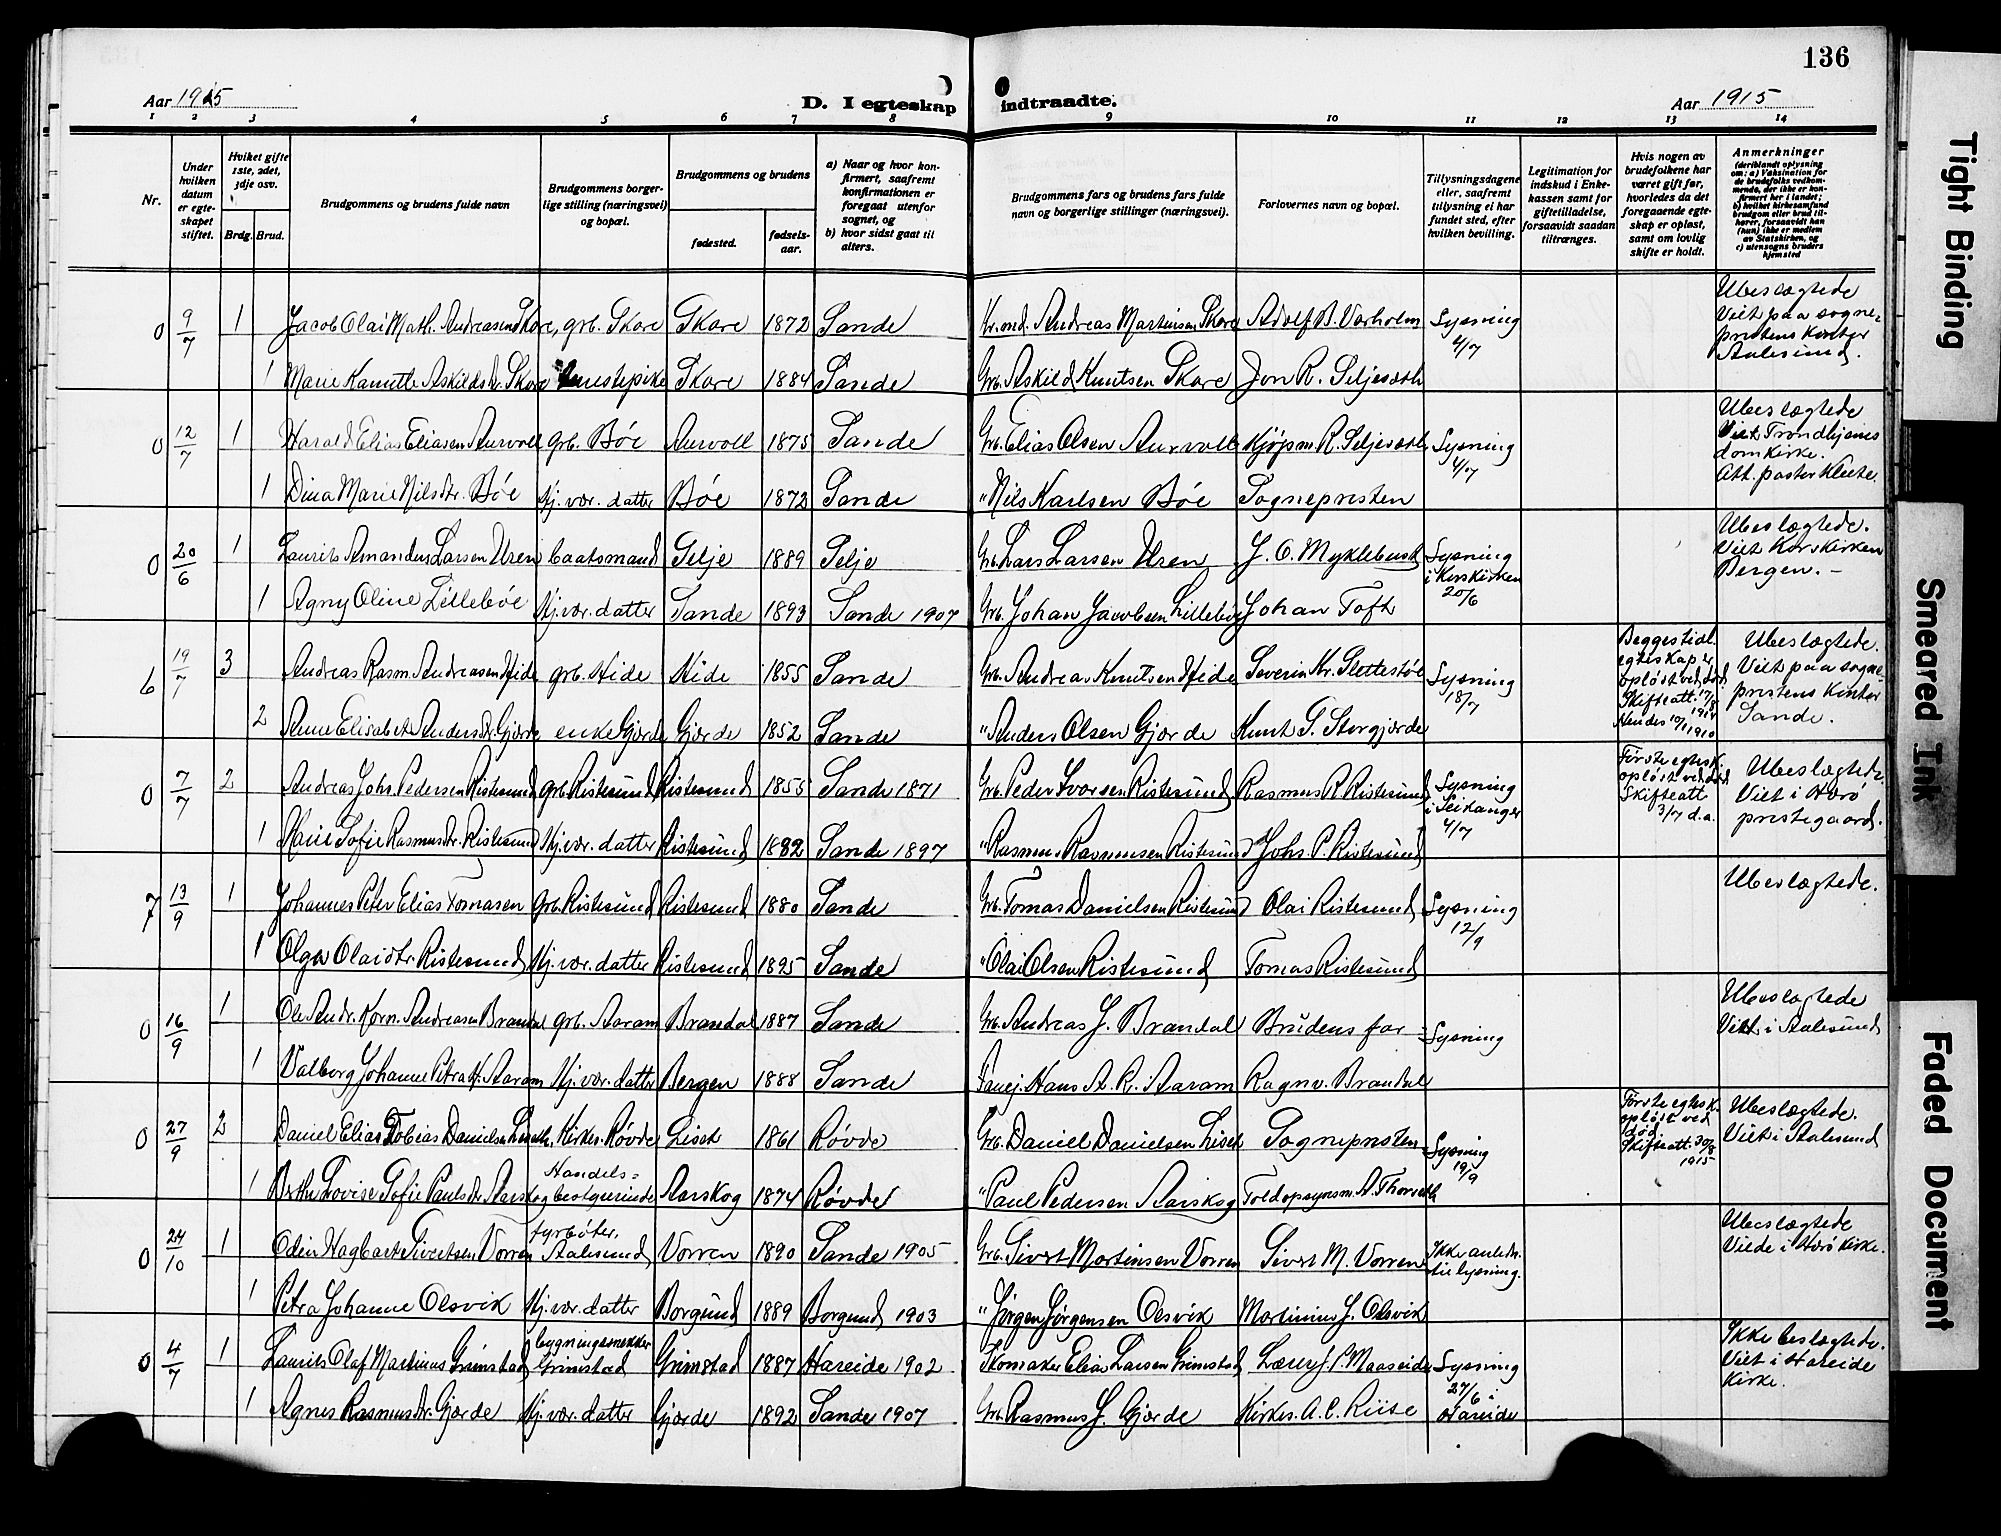 136
Aar 1915
D. I egteskap indtraadte.
Aar 1915
1 2 3 4 5 6 7 8 9 10 11 12 13 14
Nr.
Under hvilken datum er egteskapet stiftet.
Hvilket gifte 1ste, 2det, 3dje osv.
Brdg. Brud.
Brudgommens og brudens fulde navn
Brudgommens borgerlige stilling (næringsvei) og bopæl.
Brudgommens og brudens
fødested.
fødselsaar.
a) Naar og hvor konfirmert, saafremt konfirmationen er foregaat utenfor sognet, og b) hvor sidst gaat til alters.
Brudgommens fars og brudens fars fulde navn og borgerlige stillinger (næringsvei).
Forlovernes navn og bopæl.
Tillysningsdagene eller, saafremt tillysning ei har fundet sted, efter hvilken bevilling.
Legitimation for indskud i Enkekassen samt for giftetilladelse, forsaavidt saadan tiltrænges.
Hvis nogen av brudefolkene har været gift før, hvorledes da det foregaaende egteskap er opløst, samt om lovlig skifte er holdt.
Anmerkninger (deriblandt oplysning om: a) Vaksination for de brudefolks vedkommende, der ikke er konfirmert her i landet; b) hvilket kirkesamfund brudgom eller brud tilhører, forsaavidt han (hun) ikke er medlem av Statskirken, og c) utensogns bruders hjemsted
0 9/7 1 Jacob Olai Math. Andreasen Skare, grb. Skare Skare 1872 Sande Kr.md. Andreas Martinsen Skare Adolf B. Varholm Lysning 4/7 Ubeslægtede Viet paa sogneprestens kontor Aalesund.
1 Marie Kamille Askildsdr. Skare Skare 1884 Sande Grb. Askild Knutsen Skare Jon R. Seljeseth
0 12/7 1 Harald Elias Eliasen Aurvoll grb. Bøe Aurvoll 1875 Sande Grb. Elias Olsen Aurvoll Kjøpm. R. Seljeseth Lysning 4/7 Ubeslægtede Viet Trondhjems domkirke. Att. pastor Klæte.
1 Dina Marie Nilsdtr. Bøe Hj.vær. datter Bøe 1872 Sande " Nils Karlsen Bøe Sognepresten
0 20/6 1 Laurits Amandus Larsen Uren baatsmand Selje 1889 Selje Grb. Lars Larsen Uren J. O. Myklebust Lysning i Korskirken 20/6 Ubeslægtede. Viet Korskirken Bergen. –
1 Agny Oline Lillebøe Hj.vær. datter Sande 1893 Sande 1907 Grb. Johan Jacobsen Lillebøe Johan Toft
6 19/7 3 Andreas Rasm. Andreasen Hide grb. Hide Hide 1855 Sande Grb. Andreas Knutsen Hide Severin Kr. Slottestøe Lysning 18/7 Begges tidl. egteskap er opløst ved død Skifteatt. 17/8 1914 Hendes 10/1 1910 Ubeslægtede. Viet paa sogneprestens kontor Sande.
2 Anne Elisabete Andersdr. Gjærde enke Gjærde Gjærde 1852 Sande " Anders Olsen Gjærde Knut T. Storgjærde
0 7/7 2 Andreas Johs. Pedersen Ristesund grb Ristesund Ristesund 1855 Sande 1871 Grb. Peder Ivarsen Ristesund Rasmus R. Ristesund Lysning i Leikanger 4/7 Første egtesk. opløst ved død Skifteatt 3/7 d.a. Ubeslægtede Viet i Herø prestegaard.
1 Marie Sofie Rasmusdr. Ristesund Hj.vær. datter Ristesund 1882 Sande 1897 " Rasmus Rasmussen Ristesund Johs. P. Ristesund
7 13/9 1 Johannes Peter Elias Tomasen grb. Ristesund Ristesund 1880 Sande Grb. Tomas Danielsen Ristesund Olai Ristesund Lysning 12/9 Ubeslægtede.
1 Olga Olaidtr. Ristesund Hj.vær. datter Ristesund 1895 Sande " Olai Olsen Ristesund Tomas Ristesund
0 16/9 1 Ole Andr. Korn. Andreasen Brandal grb. Aaram Brandal 1887 Sande Grb. Andreas J. Brandal Brudens far Lysning Ubeslægtede Viet i Aalesund
1 Valborg Johanne Petra H. Aaram Hj.vær. datter Bergen 1888 Sande Hans A. R. Aaram Ragnv. Brandal
0 27/9 2 Daniel Elias Tobias Danielsen Kirkes. Røvde Liset 1861 Røvde Grb. Daniel Danielsen Liset Sognepresten Lysning 19/9 Første egtesk. opløst ved død Skifteatt. 30/8 1915 Ubeslægtede. Viet i Aalesund
1 Berthe Lovise Sofie Paulsdr. Aarskog Handelsbestyrerinde Aarskog 1874 Røvde " Paul Pedersen Aarskog Toldopsynsm. A. Thorseth
0 24/10 1 Odin Hagbart Sivertsen Vorren fyrbøter, Aalesund Vorren 1890 Sande 1905 Grb. Sivert Martinsen Vorren Sivert M. Vorren Ikke anledn. til lysning. Ubeslægtede Viede i Herø kirke.
1 Petra Johanne Olsvik Hj.vær. datter Borgund 1889 Borgund 1903 " Jørgen Jørgensen Olsvik Martinius J. Olsvik
0 4/7 1 Laurits Olaf Martinus Grimstad bygningssnekker Grimstad Grimstad 1887 Hareide 1902 Skomaker Elias Larsen Grimstad Lærer J. P. Maaseide Lysning 27/6 i Hareide Ikke beslægtede. Viet i Hareide Kirke.
1 Agnes Rasmusdtr. Gjærde Hj.vær. datter Gjærde 1892 Sande 1907 Grb. Rasmus J. Gjærde Kirkes. A. C. Riise
Tight Binding
Smeared Ink
Faded Document